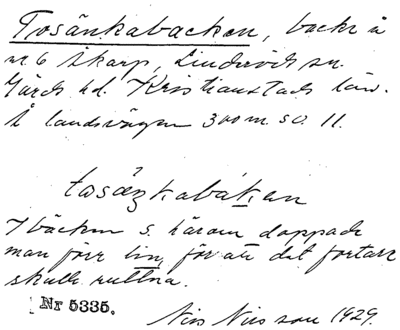 Tosänkabacken, backe å
nr 6 Åkarp, Linderöds sn.
Gärds hd. Kristianstads län.
Å landsvägen 300 m. so. 11.
tosäŋkabákən
I bäcken s. härom doppade
man förr lin, för att det fortare
skulle ruttna.
Nr 5335.
Nils Nilsson 1929.